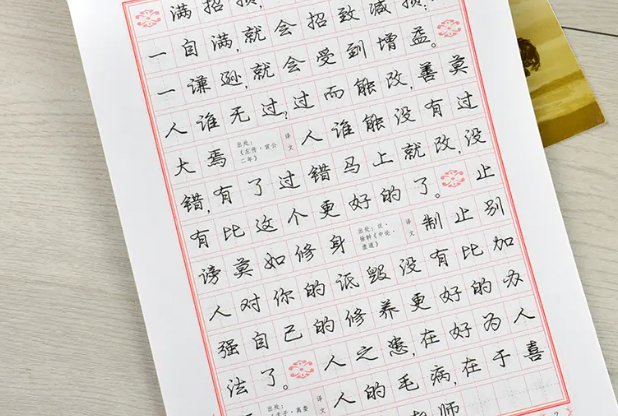 满招损,
一自满,就会招致减损,
一谦逊,就会受到增益。
人谁无过?过而能改,善莫
大焉 出处:《左传·宣公二年》 译文 人谁能没有过
错,有了过错马上就改,没
有比这个更好的了。 止
谤莫如修身 出处:汉·徐幹《中论·虚道》 译文 制止别
人对你的诋毁没有比加
强自己的修养更好的办
法了。 人之患,在好为人
译文 人的毛病,在于喜